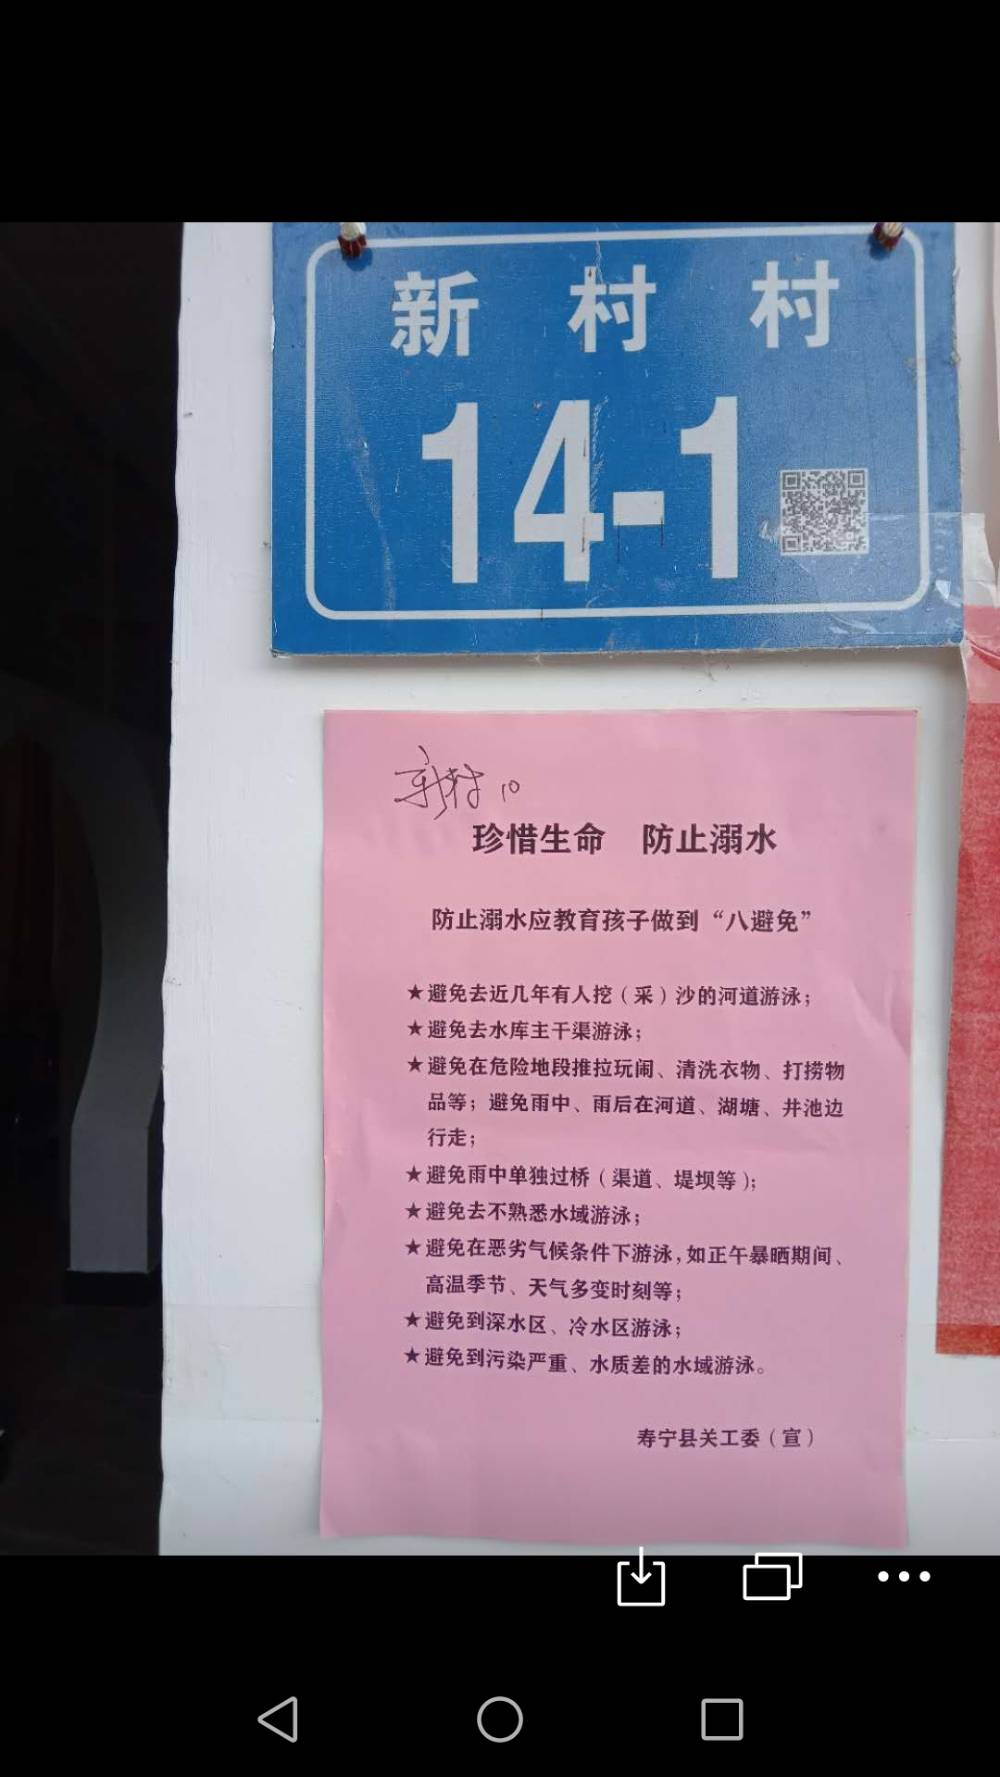 新村村
14-1
新村 10
珍惜生命 防止溺水
防止溺水应教育孩子做到“八避免”
★避免去近几年有人挖（采）沙的河道游泳；
★避免去水库主干渠游泳；
★避免在危险地段推拉玩闹、清洗衣物、打捞物
品等；避免雨中、雨后在河道、湖塘、井池边
行走；
★避免雨中单独过桥（渠道、堤坝等）；
★避免去不熟悉水域游泳；
★避免在恶劣气候条件下游泳，如正午暴晒期间、
高温季节、天气多变时刻等；
★避免到深水区、冷水区游泳；
★避免到污染严重、水质差的水域游泳。
寿宁县关工委（宣）